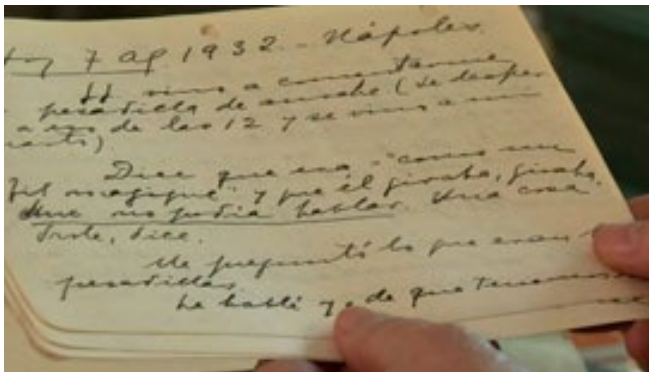 Hoy 7 Ag 1932 - Nápoles
JJ vino a comentarme
pesadilla de anoche (se desper
a eso de las 12 y se vino a mi
cuarto)
Dice que era "como un
y que él giraba, giraba.
Que no podía hablar. Una cosa
triste, dice.
Me preguntó lo que eran
pesadillas
Le hablé yo de que tenemos